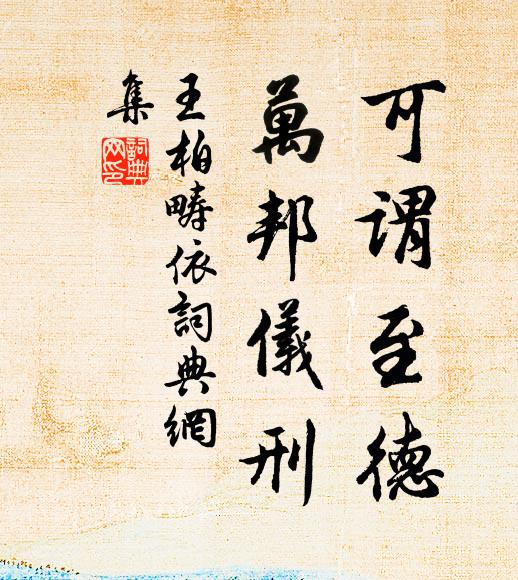 可謂至德
萬邦儀刑
王柏疇依詞典網
集
詞典
网印